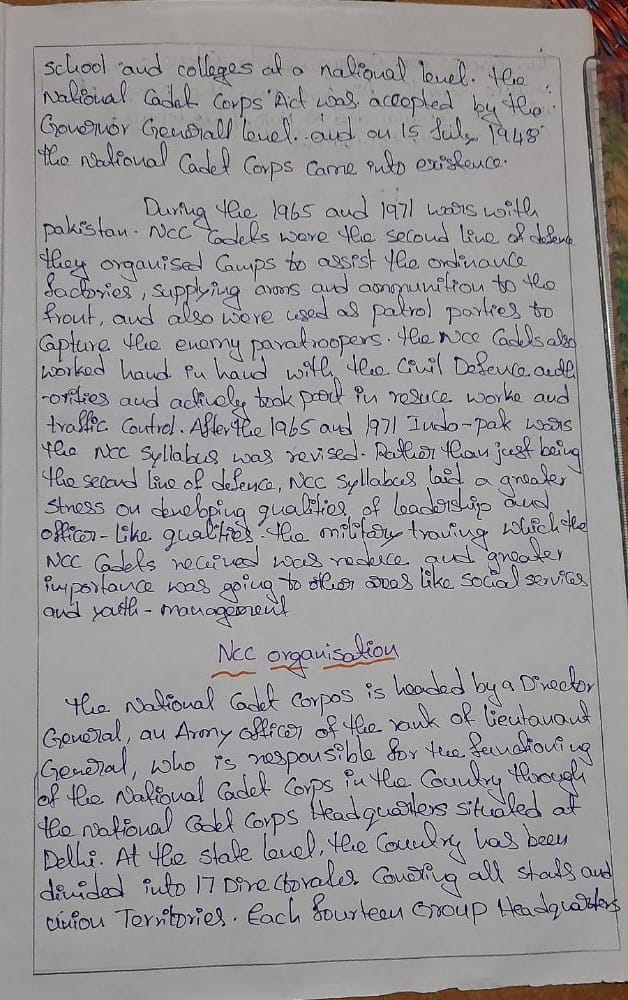 school and colleges at a national level. the
National Cadet Corps Act was accepted by the
Governor Generall level. and on 15 July 1948
the National Cadet Corps came into existence.
During the 1965 and 1971 wars with
pakistan. NCC Cadets were the second line of defence
they organised Camps to assist the ordinance
factories, supplying arms and ammunition to the
front, and also were used as patrol parties to
Capture the enemy paratroopers. the NCC Cadets also
worked hand in hand with the Civil Defence auth
-orities and actively took part in resuce worke and
traffic Control. After the 1965 and 1971 Indo-pak wars
the NCC Syllabus was revised. Rather than just being
the second line of defence, NCC syllabus laid a greater
stress on developing qualities of leadership and
officer-like qualities. the military traning which the
NCC Cadets received was reduce and greater
importance was going to other areas like social services
and youth-management
NCC organisation
the National Cadet Corpos is headed by a Director
General, an Army officer of the rank of lieutanant
General, who is responsible for the functioning
of the National Cadet Corps in the Country through
the National Cadet Corps Headquarters situated at
Delhi. At the state level, the Country has been
divided into 17 Directorates Covering all stats and
union Territories. Each fourteen Group Headquarters